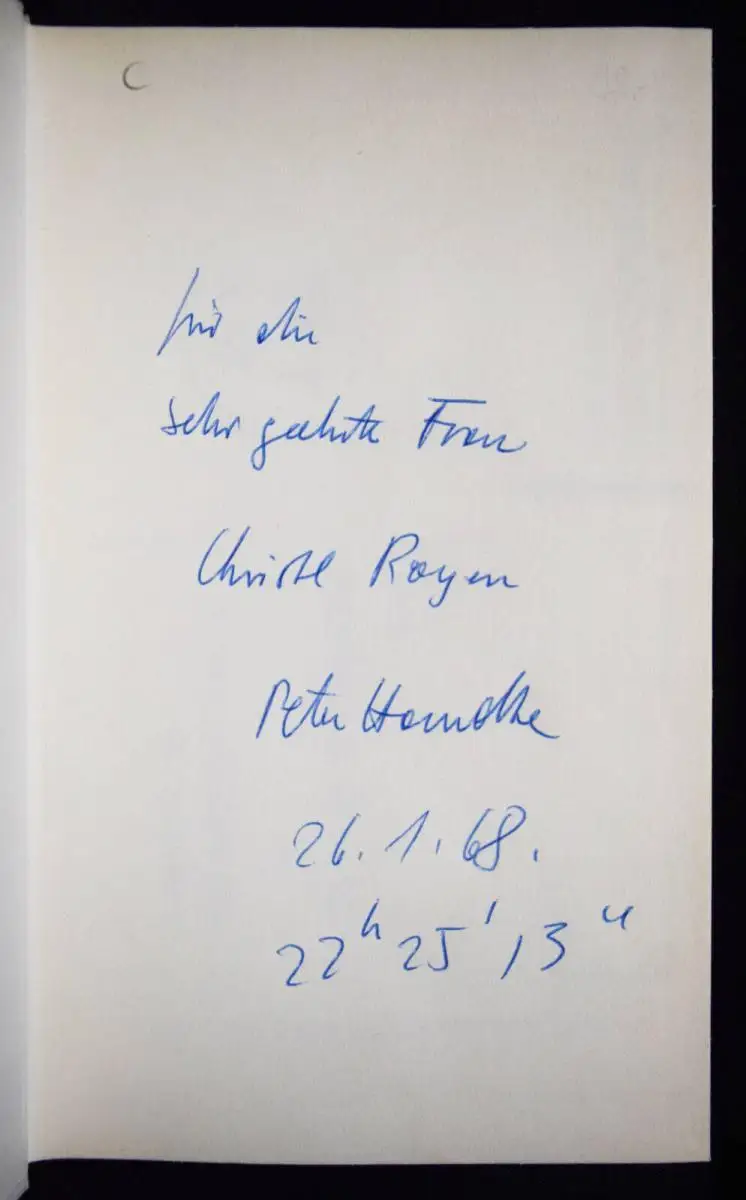 C
für die
sehr geehrte Frau
Christl Royen
Peter Handke
26.1.68.
22h 25' 13"